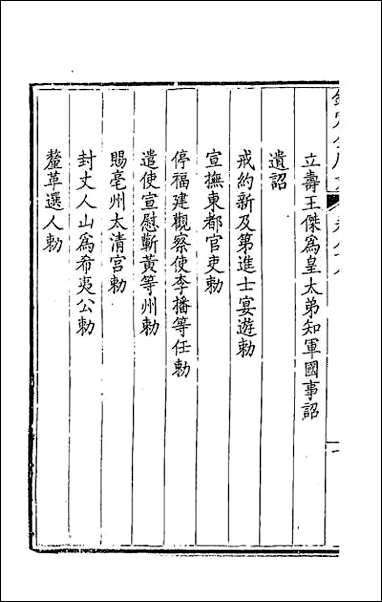 立壽王傑爲皇太弟知軍國事詔
遺詔
戒約新及第進士宴遊敕
宣撫東都官吏敕
停福建觀察使李播等任敕
遣使宣慰蘄黃等州敕
賜亳州太清宮敕
封丈人山爲希夷公敕
釐革選人敕